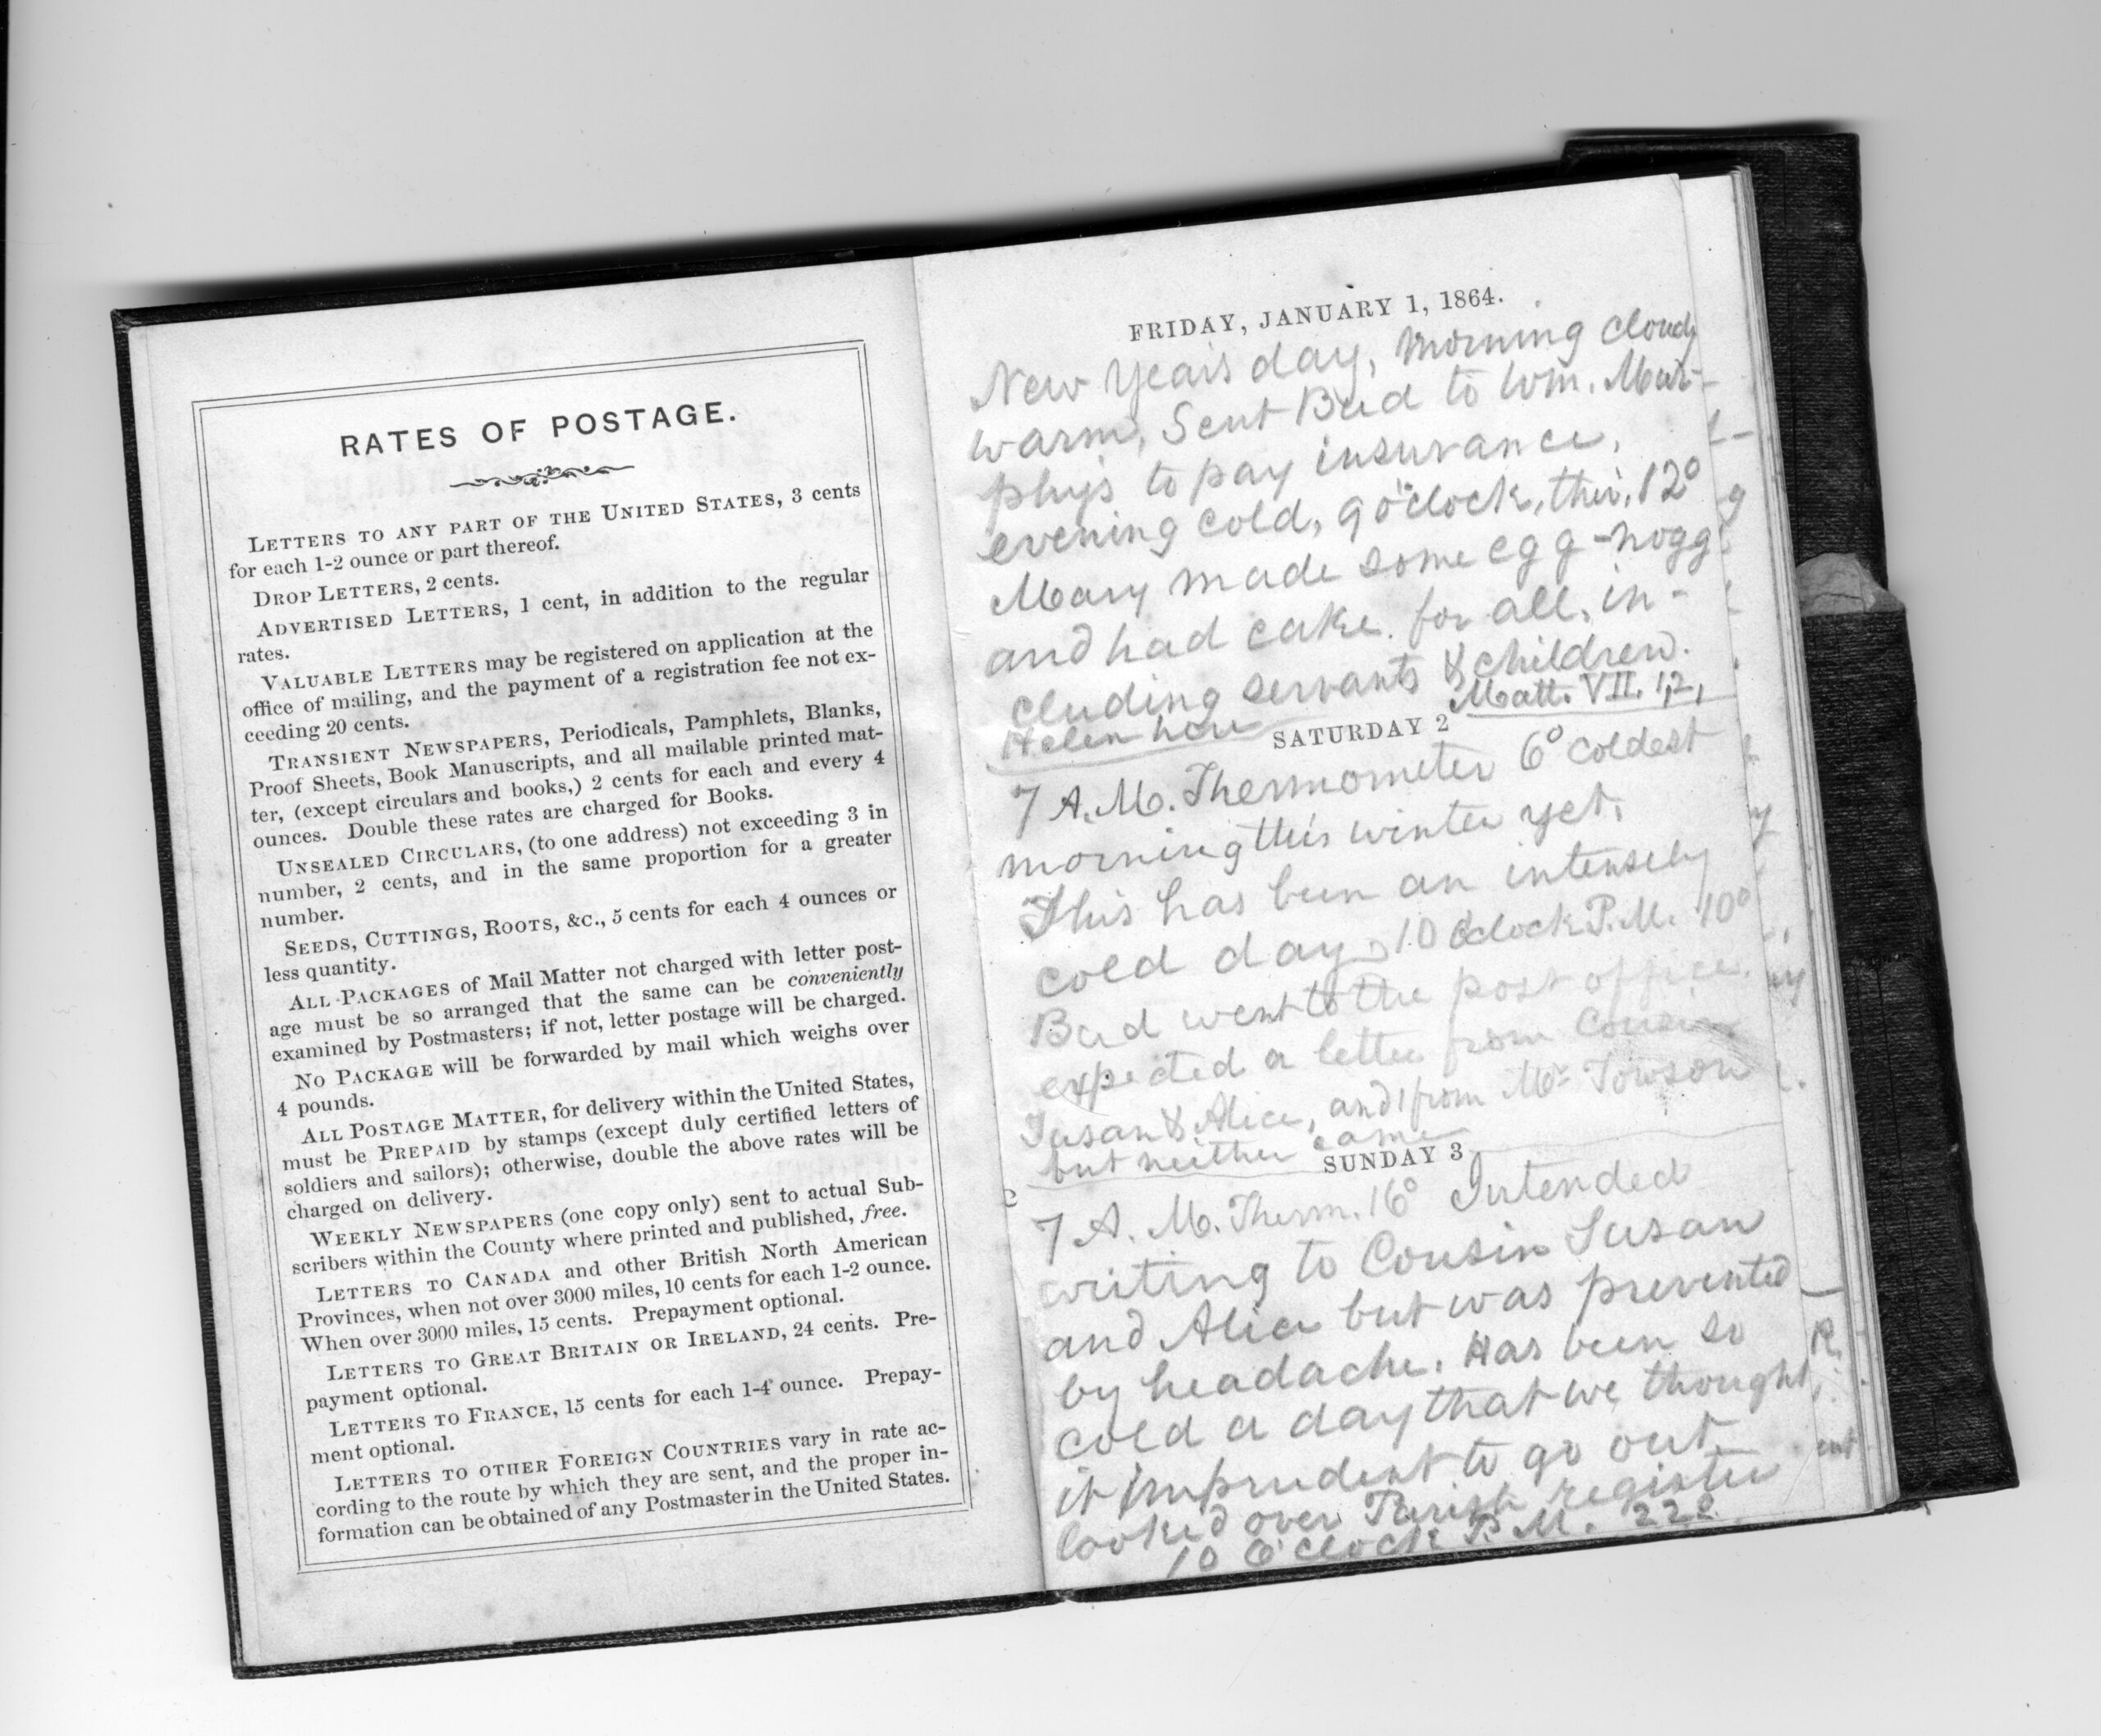 RATES OF POSTAGE.
LETTERS TO ANY PART OF THE UNITED STATES, 3 cents
for each 1-2 ounce or part thereof.
DROP LETTERS, 2 cents.
ADVERTISED LETTERS, 1 cent, in addition to the regular
rates.
VALUABLE LETTERS may be registered on application at the
office of mailing, and the payment of a registration fee not ex-
ceeding 20 cents.
TRANSIENT NEWSPAPERS, Periodicals, Pamphlets, Blanks,
Proof Sheets, Book Manuscripts, and all mailable printed mat-
ter, (except circulars and books,) 2 cents for each and every 4
ounces. Double these rates are charged for Books.
UNSEALED CIRCULARS, (to one address) not exceeding 3 in
number, 2 cents, and in the same proportion for a greater
number.
SEEDS, CUTTINGS, ROOTS, &C., 5 cents for each 4 ounces or
less quantity.
ALL PACKAGES of Mail Matter not charged with letter post-
age must be so arranged that the same can be conveniently
examined by Postmasters; if not, letter postage will be charged.
NO PACKAGE will be forwarded by mail which weighs over
4 pounds.
ALL POSTAGE MATTER, for delivery within the United States,
must be PREPAID by stamps (except duly certified letters of
soldiers and sailors); otherwise, double the above rates will be
charged on delivery.
WEEKLY NEWSPAPERS (one copy only) sent to actual Sub-
scribers within the County where printed and published, free.
LETTERS TO CANADA and other British North American
Provinces, when not over 3000 miles, 10 cents for each 1-2 ounce.
When over 3000 miles, 15 cents. Prepayment optional.
LETTERS TO GREAT BRITAIN OR IRELAND, 24 cents. Pre-
payment optional.
LETTERS TO FRANCE, 15 cents for each 1-4 ounce. Prepay-
ment optional.
LETTERS TO OTHER FOREIGN COUNTRIES vary in rate ac-
cording to the route by which they are sent, and the proper in-
formation can be obtained of any Postmaster in the United States.
FRIDAY, JANUARY 1, 1864.
New Year's day, morning cloudy
warm, Sent Bud to Wm. Mur-
phy's to pay insurance,
evening cold, 9 o'clock, ther. 12°
Mary made some egg-nogg
and had cake for all, in-
cluding servants & children.
Helen here Matt. VII. 1,2,
SATURDAY 2
7 A.M. Thermometer 6° coldest
morning this winter yet.
This has been an intensely
cold day, 10 o'clock P.M. 10°
Bud went to the post office.
expected a letter from Cousin
Susan & Alice, and from Mr Towson
but neither came
SUNDAY 3
7 A. M. Therm. 16° Intended
writing to Cousin Susan
and Alice but was prevented
by headache. Has been so
cold a day that we thought
it imprudent to go out,
looked over Parish register
10 O'clock P.M. 22°.